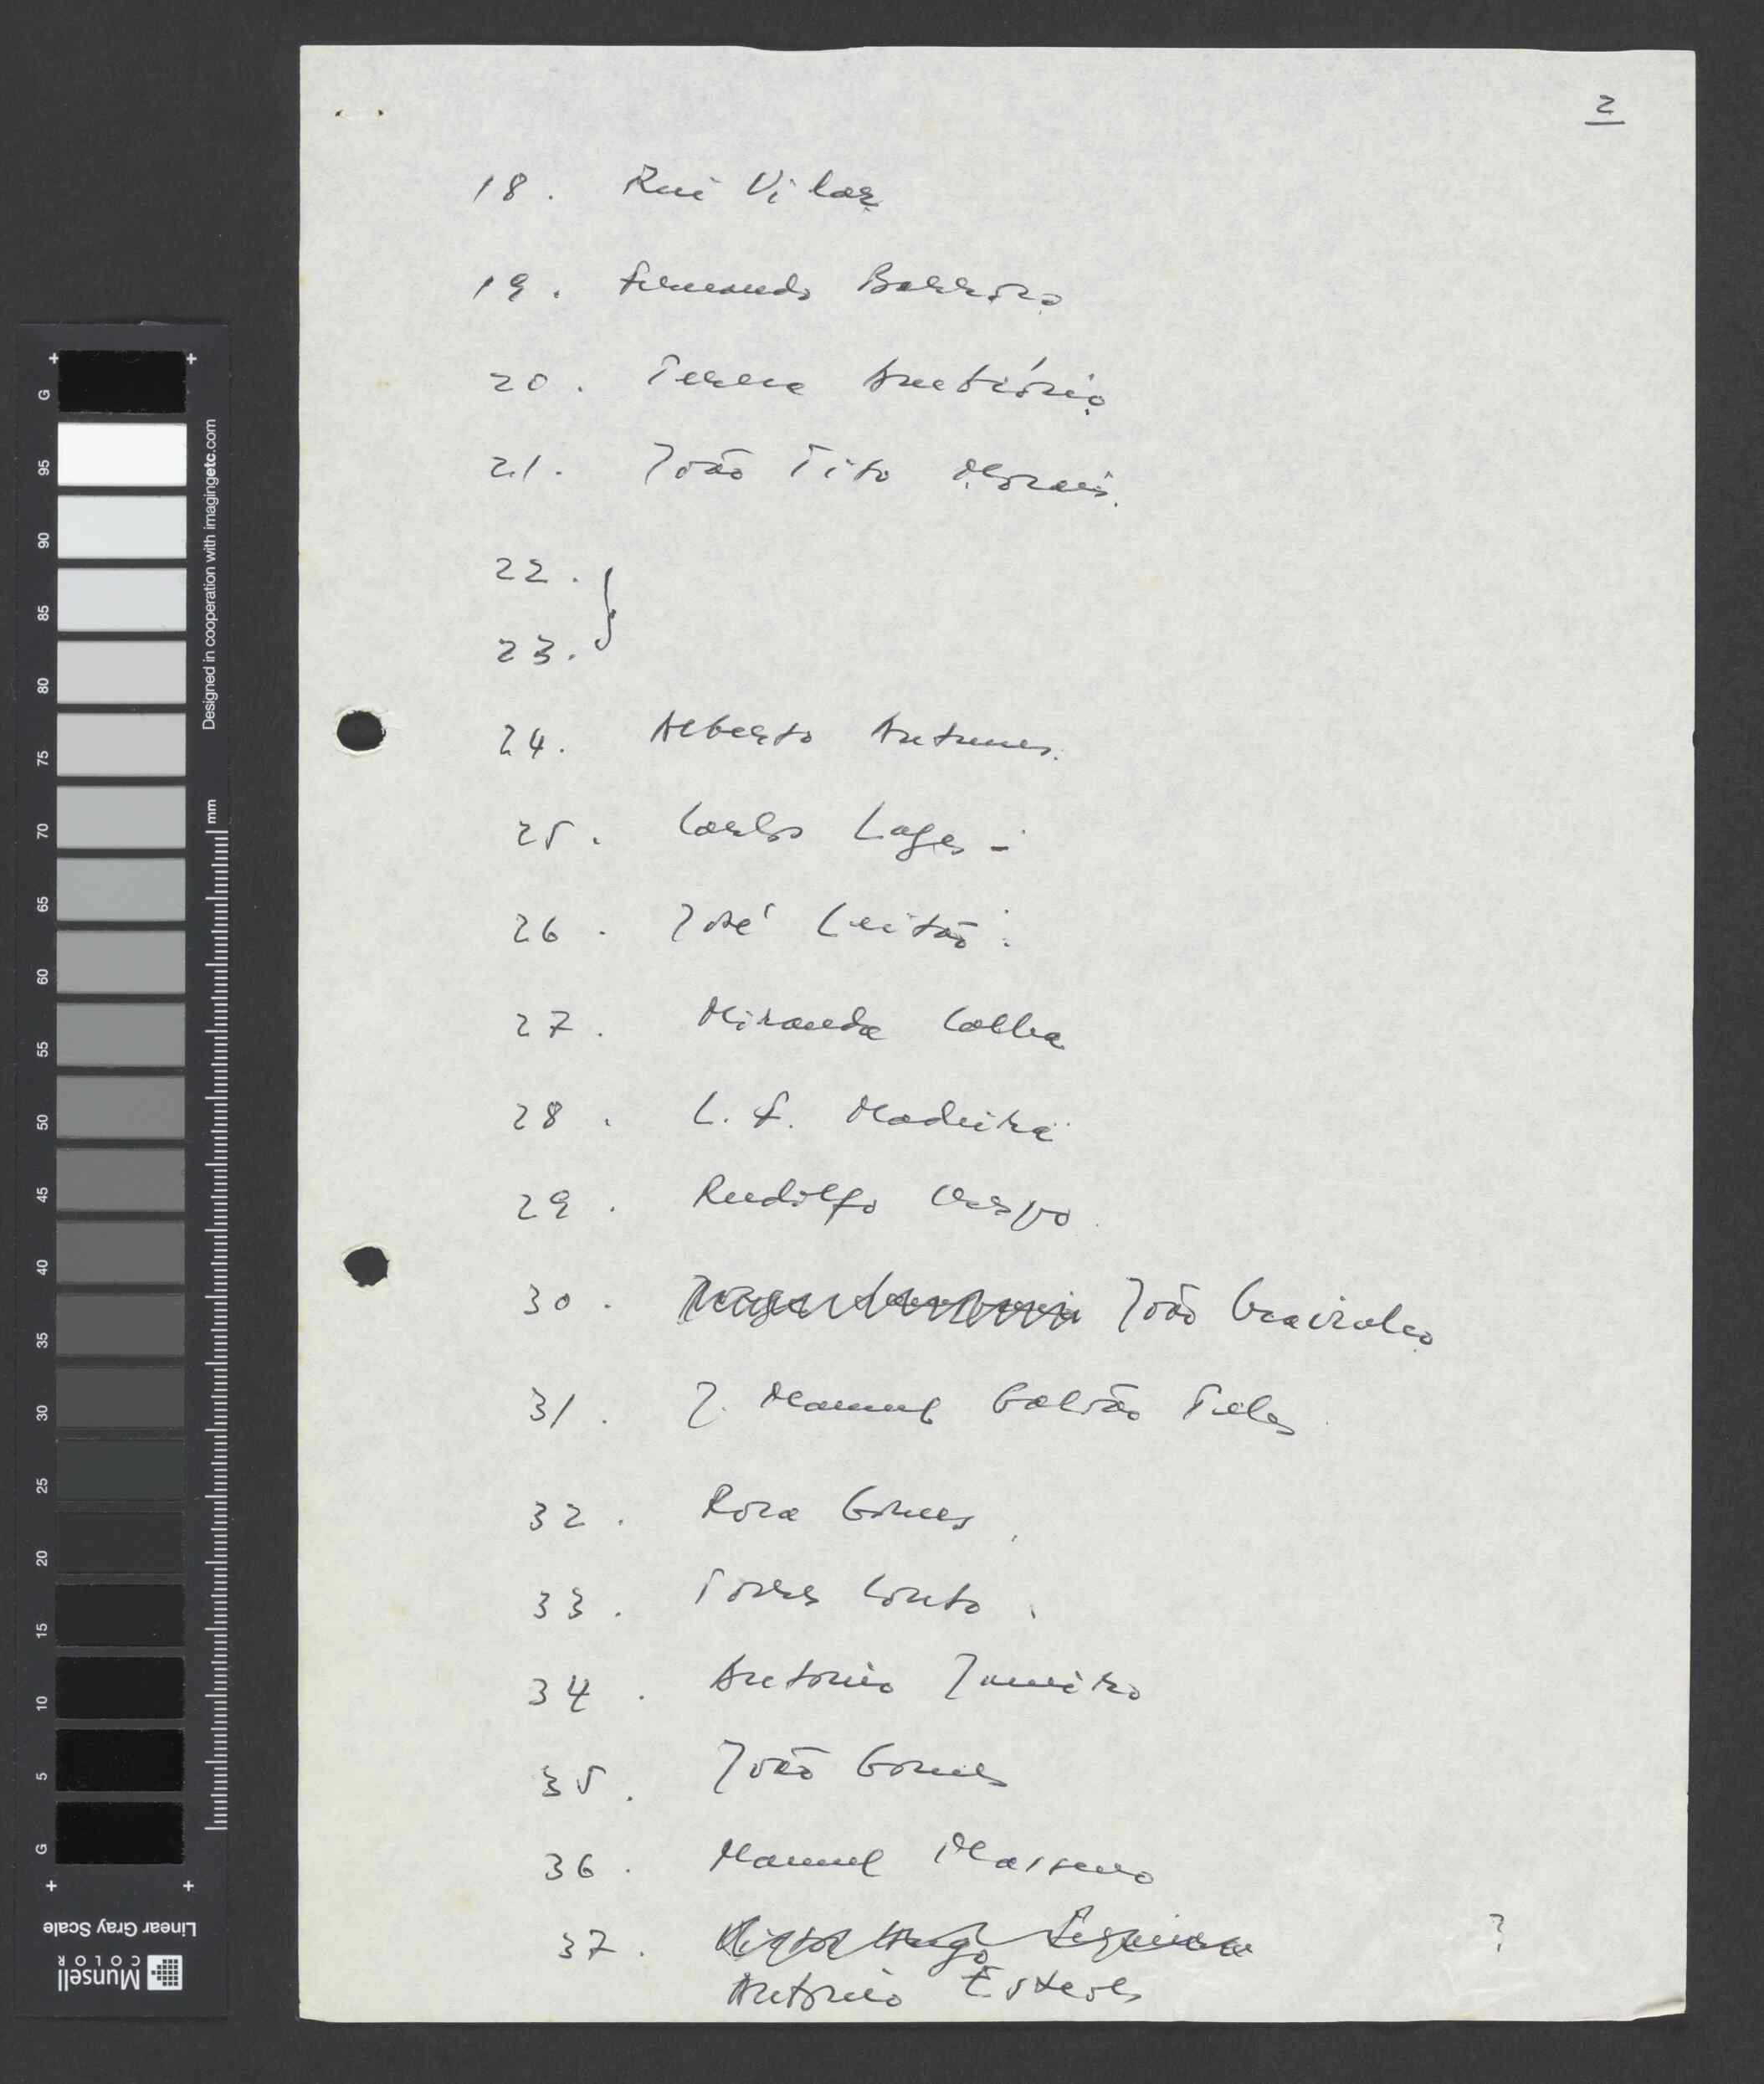 2
18. Rui Vilar
19. Fernando Barroso
20. Teresa Ambrósio
21. João Tito Morais.
22. }
23.
24. Alberto Antunes.
25. Carlos Lage -
26. José Leitão.
27. Miranda Calha
28. L. F. Madeira
29. Rudolfo Crespo.
30. João Cravinho
31. J. Manuel Galvão Teles
32. Rosa Gomes
33. Torres Couto.
34. Antonio Janeiro
35. João Gomes
36. Manuel
37. Victor Hugo Sequeira ?
Antonio Esteves
G 95 90 85 80 75 70 65 60 55 50 45 40 35 30 25 20 15 10 5 G
Designed in cooperation with imagingetc.com
mm
Linear Gray Scale
Munsell
COLOR